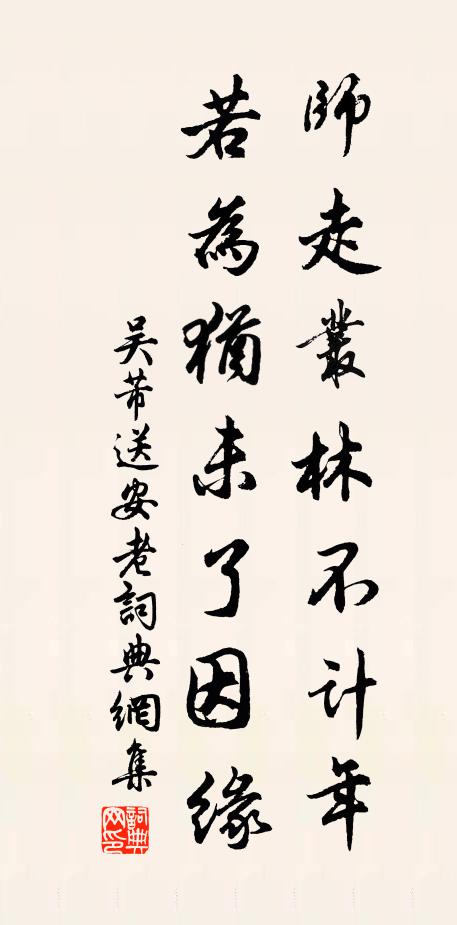 師走叢林不計年
若為猶未了因緣
吴芾送安老詞典網集
詞典网印